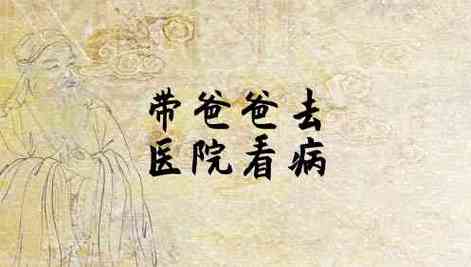 带爸爸去
医院看病